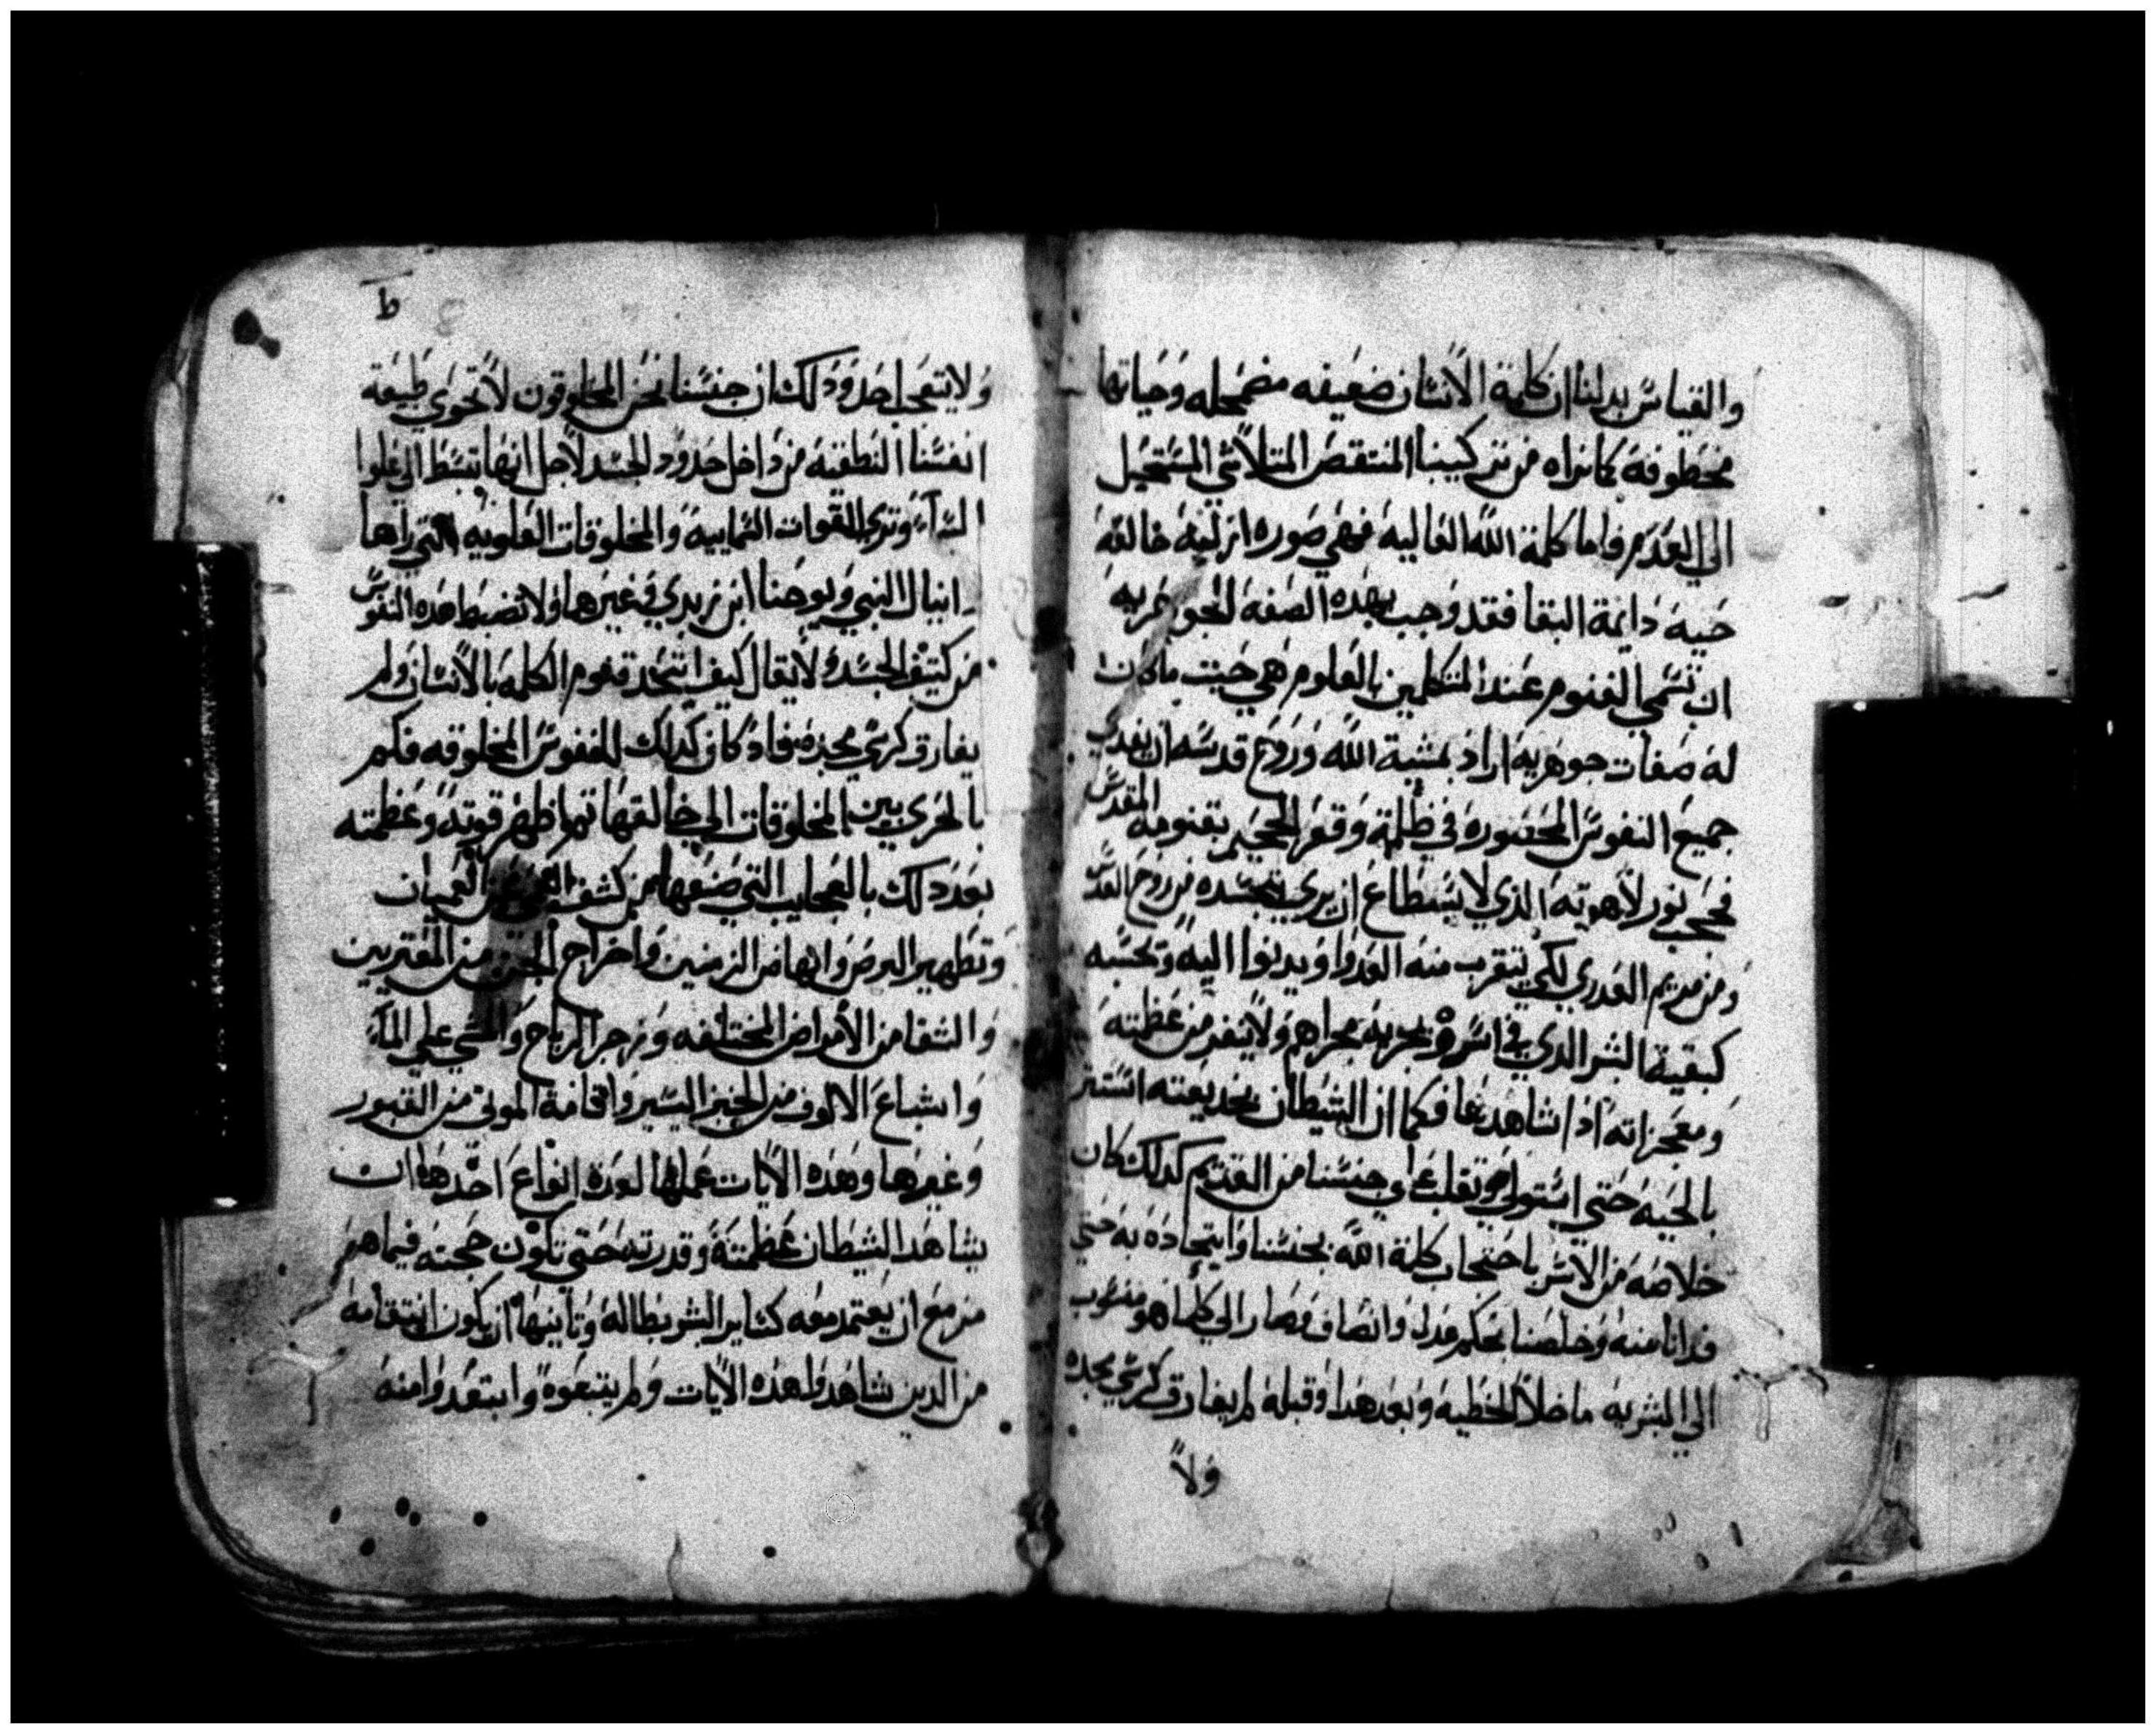 والقياس يدلنا ان كلمة الانسان ضعيفه مضمحله وحياتها
مخطوفه كما نراه من تركيبنا المنتقض المتلاشي المستحيل
الي العدم واما كلمة الله العاليه فهي صوره ازليه خالقه
حيه دايمة البقا فقد وجب بهده الصفه
ان تسمي القنوم عند المتكلمين بالعلوم هي حيت ما كان
له صفات جوهريه اراد بمشية الله وروح قدسه ان يفدي
جميع النفوس المحصوره في ظلمة وقعر الجحيم بقنومه المقدس
فحجب نور لاهوته الدي لا يستطاع ان يري بتجسده من روح القدس
ومن مريم العدري لكي يتقرب منه العدوا ويدنوا اليه وتحسبه
كبقية البشر الدي في اسره ويجريه مجراهم ولا ينفر من عظمته
ومعجزاته اذا شاهدها فكما ان الشيطان بخديعته استتر
بالحيه حتي استولي وتغلب علي جنسنا من القديم كدلك كان
خلاصه من الاسر باحتجاب كلمة الله بجنسنا واتحاده به حتي
فدانا منه وخلصنا بحكم عدل وانصاف فصار الي كلما هو منسوب
الي البشريه ما خلا الخطيه وبعد هدا وقبله لم يفارق كرسي مجده
ولا
ط
ولا يتعجب احد ودلك ان جنسنا نحن المخلوقون لا تحوي طبيعة
انفسنا النطقيه من داخل حدود الجسد لاجل انها تبسط الي علوا
السماء وتري القوات السماييه والمخلوقات العلويه التي راها
دانيال النبي ويوحنا ابن زبدي وغيرهما ولا تضبط هده النفوس
من كتيف الجسد ولا يقال كيف اتحد قنوم الكلمه بالانسان ولم
يفارق كرسي مجده فاد كان كدلك للنفوس المخلوقه فكم
بالحري بين المخلوقات الي خالقها تم اظهر قوته وعظمته
بعد دلك بالعجايب التي صنعها من كشف العمي عن العميان
وتطهير البرص وانهاض الزمنين واخراج الجن من المعترين
والشفا من الامراض المختلفه وزجر الرياح والمشي علي الماء
واشباع الالوف من الخبز اليسير واقامة الموتي من القبور
وغيرها وهده الايات عملها لعدة انواع احدها ان
يشاهد الشيطان عظمته وقدرته حتي تكون حجته فيما هو
مزمع ان يعتمد معه كساير البشر بطاله وتانيها ان يكون انتقامه
من الدين شاهدوا هده الايات ولم يتبعوه وابتعدوا منه